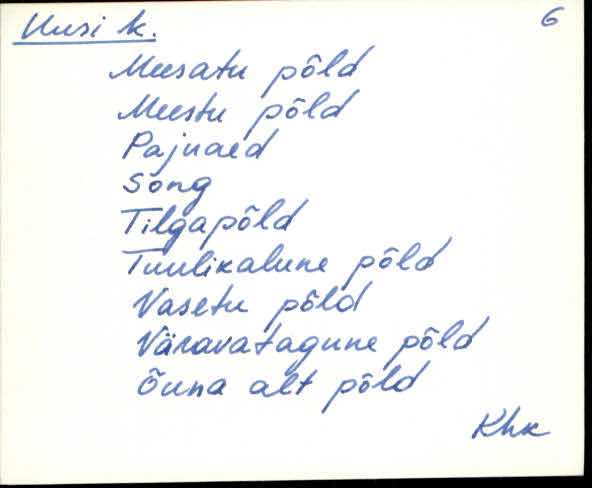 Uusi k. 6
Meesatu põld
Meestu põld
Pajuaed
Song
Tilgapõld
Tuulikalune põld
Vasetu põld
Väravatagune põld
Õuna alt põld
Khk